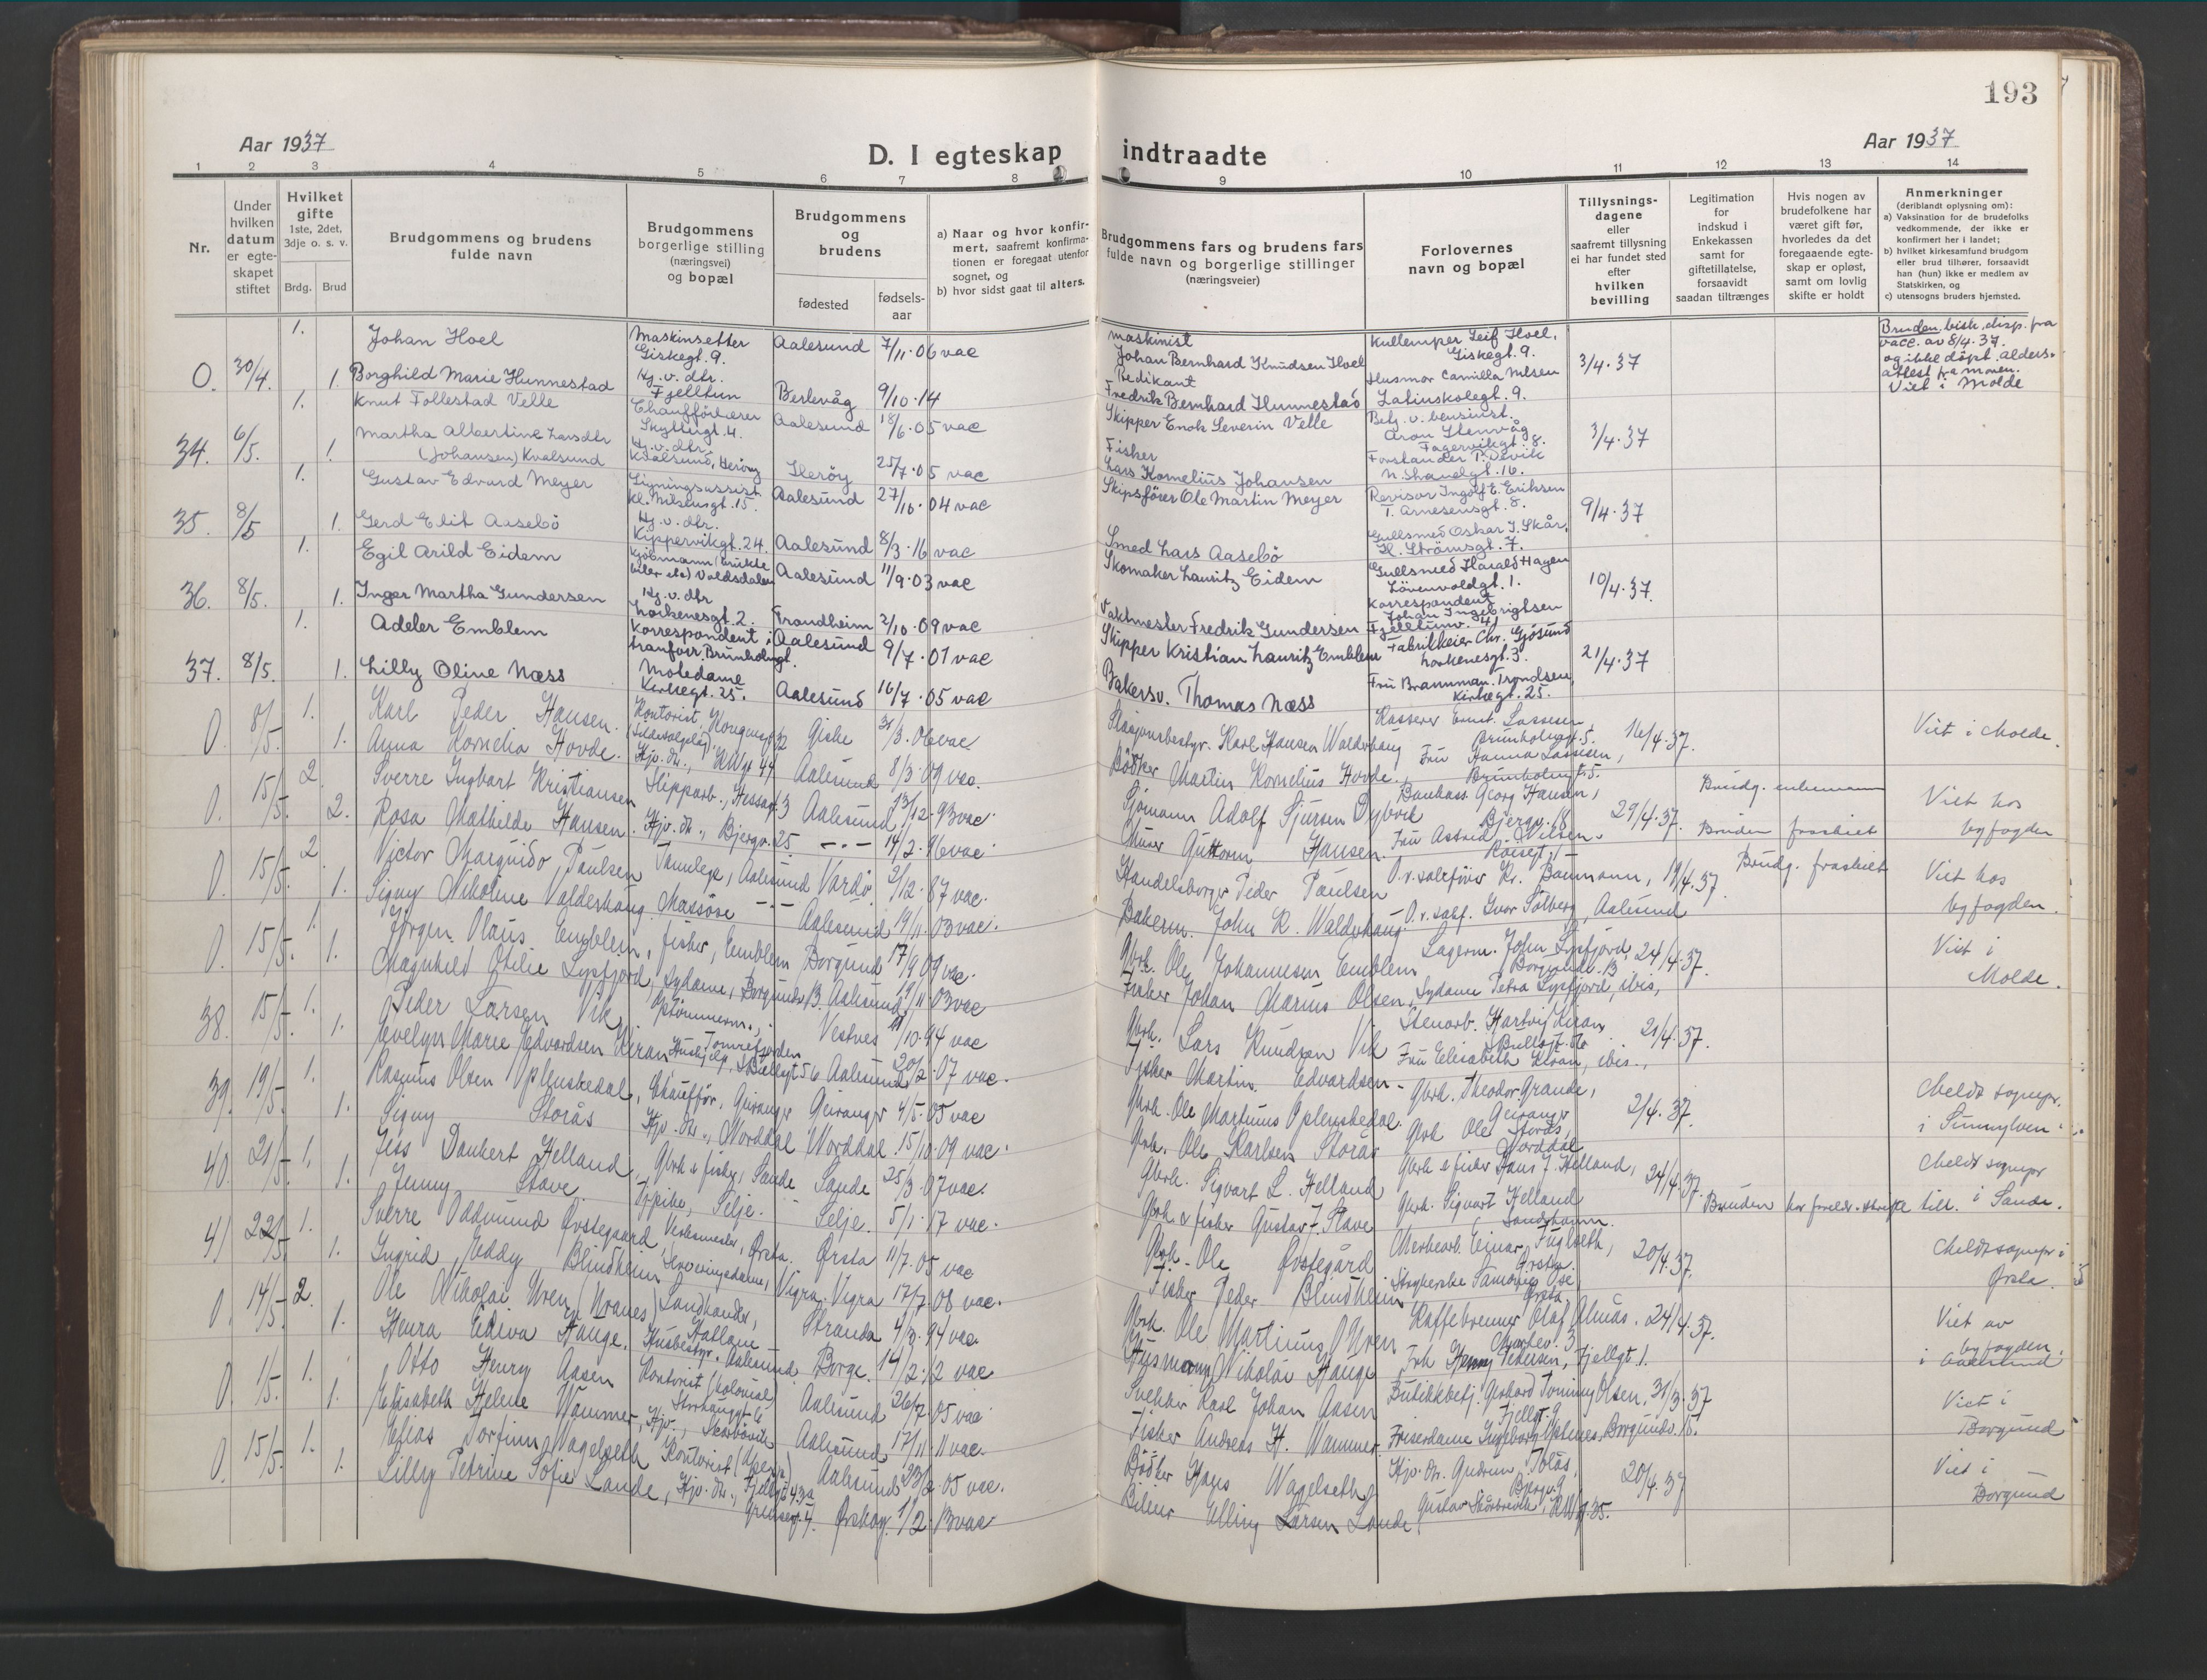 193
Aar 1937
D. I egteskap indtraadte
Aar 1937
1 2 3 4 5 6 7 8 9 10 11 12 13 14
Nr.
Under hvilken datum er egteskapet stiftet
Hvilket gifte 1ste, 2det, 3dje o. s. v.
Brdg. Brud
Brudgommens og brudens fulde navn
Brudgommens borgerlige stilling (næringsvei) og bopæl
Brudgommens og brudens
fødested fødselsaar
a) Naar og hvor konfirmert, saafremt konfirmationen er foregaat utenfor sognet, og
b) hvor sidst gaat til alters.
Brudgommens fars og brudens fars fulde navn og borgerlige stillinger (næringsveier)
Forlovernes navn og bopæl
Tillysningsdagene eller saafremt tillysning ei har fundet sted efter hvilken bevilling
Legitimation for indskud i Enkekassen samt for giftetillatelse, forsaavidt saadan tiltrænges
Hvis nogen av brudefolkene har været gift før, hvorledes da det foregaaende egteskap er opløst, samt om lovlig skifte er holdt
Anmerkninger (deriblandt oplysning om):
a) Vaksination for de brudefolks vedkommende, der ikke er konfirmert her i landet;
b) hvilket kirkesamfund brudgom eller brud tilhører, forsaavidt han (hun) ikke er medlem av Statskirken, og
c) utensogns bruders hjemsted.
0. 30/4. 1. Johan Hoel Maskinsetter Giskegt. 9. Aalesund 7/11.06 vac maskinist Johan Bernhard Knudsen Hoel Kullemper Leif Hoel, Giskegt. 9. 3/4.37 Bruden bisk. disp. fra vacc. av 8/4.37. og ikke döpt. aldersattest fra moren. Viet i Molde
1. Borghild Marie Hunnestad Hj. v. dtr. Fjelltun Berlevåg 9/10.14 Predikant Fredrik Bernhard Hunnestad Husmor Camilla Nilsen Latinskolegt. 9.
34. 6/5. 1. Knut Follestad Velle Chaufförlærer Skyttergt. 4. Aalesund 18/6.05 vac Skipper Enok Severin Velle Betj. v. bensinst. Aron Stenvåg Fagervikgt. 8. 3/4.37
1. Martha Albertine Larsdtr (Johansen) Kvalsund Hj. v. dtr. Kvalsund, Heröy Heröy 25/7.05 vac Fisker Lars Kornelius Johansen Forstander P. Devik N. Strandgt. 16.
35. 8/5 1. Gustav Edvard Meyer Ligningsassist. Kl. Nilsengt. 15. Aalesund 27/10.04 vac Skipsförer Ole Martin Meyer Revisor Ingolf E. Eriksen T. Arnesensgt. 8. 9/4.37
1. Gerd Elit Aasebö Hj. v. dtr. Kippervikgt. 24. Aalesund 8/3.16 vac Smed Lars Aasebö Gullsmed Oskar J. Skår, H. Strömsgt. 7.
36. 8/5. 1. Egil Arild Eidem Kjöbmann (brukte biler etc) Voldsdalen Aalesund 11/9.03 vac Skomaker Lauritz Eidem Gullsmed Harald Hagen Lövenvoldgt. 1. 10/4.37.
1. Inger Martha Gundersen Hj. v. dtr Lorkenesgt. 2. Trondheim 2/10.09 vac Vaktmester Fredrik Gundersen Korrespondent Johan Ingebrigtsen Fjelltunv. 4
37. 8/5. 1. Adler Emblem Korrespondent i tranforr. Brunholmgt. Aalesund 9/7.01 vac Skipper Kristian Lauritz Emblem Fabrikkeier Chr. Gjösund Lorkenesgt. 3. 21/4.37
1. Lilly Oline Næss Motedame Kirkegt. 25. Aalesund 16/7.05 vac Bakersv. Thomas Næss Fru Brannman. Trondsen, Kirkegt. 25.
0. 8/5. 1. Karl Peder Hansen. Kontorist, Kongensgt. Giske 31/3.06 vac. Karl Hansen Walderhaug Kasserer Ernst Lassesen, Brunholmgt. 5. 16/4.37. Viet i Molde.
1. Anna Kornelia Hovde. Hjv. dtr., Aalesund 8/3.09 vac. Bödker Martin Kornelius Hovde. Fru Hanna Lassesen, Brunholmgt. 5.
0. 15/5. 2. Sverre Ingbart Kristiansen Slipparb., Hessagt. 3 Aalesund 13/12.93 vac. Sjömann Adolf Sjursen Dybvik Georg Hansen, Bjergv. 18 29/4.37. Brudg. enkemann Viet hos byfogden
2. Rosa Mathilde Hansen. Hjv. dtr., Bjergv. 25 — 14/2.96 vac. Murer Guttorm Hansen. Fru Astrid Nilsen. Bruden fraskilt
0. 15/5. 2 Victor Marquido Paulsen Tannlege, Aalesund Vardö 2/12.87 vac. Handelsborger Peder Paulsen O.r.sakförer Kr. Baumann, 19/4.37. Brudg. fraskilt Viet hos byfogden.
1. Signy Nikoline Valderhaug. Massöse — Aalesund 19/11.03 vac. Bakerm. John R. Walderhaug. O.r.sakf. Ivar Solberg, Aalesund
0. 15/5. 1. Jörgen Olaus Emblem, fisker, Emblem Borgund 17/9.09 vac. Gbrk. Ole Johannesen Emblem Lagerm. John Lysfjord, Borgundv. 13 24/4.37. Viet i Molde.
1. Magnhild Otilie Lysfjord, Sydame, Borgundv. 13. Aalesund 19/11.03 vac Fisker Johan Marius Olsen, Sydame Petra Lysfjord, ibis,
38. 15/5. 1. Peder Larsen Vik, Vestnes 11/10.94 vac Gbrk. Lars Knudsen Vik Stenarb. Hartvig Kiran 21/4.37.
1. Evelyn Marie Edvardsen Kiran Aalesund 20/2.07 vac. Fisker Martin Edvardsen - Fru Elisabeth Kiran, ibis.,
39. 19/5. 1. Rasmus Olsen Oplenskedal, Chauffør, Geiranger Geiranger 4/5.05 vac Gbrk. Ole Martinus Oplenskedal. Gbrk. Theodor Grande, Geiranger 2/4.37. Meldt sognepr. i Sunnylven.
1. Signy Storås Hjv. dtr., Norddal Norddal 15/10.09 vac. Gbrk. Ole Karlsen Storås Gbrk Ole Storås, Norddal
40. 21/5. 1. Jess Dankert Helland Gbrk & fisker, Sande Sande 25/3.07 vac. Gbrk. Sigvart L. Helland Gbrk & fisker Hans J. Helland, 24/4.37. Meldt sognepr i Sande.
1. Jenny Stave. Selje. Selje. 5/1.17 vac. Gbrk & fisker Gustav J. Stave Gbrk. Sigvart Helland Bruden har foreldr. skriftl. till.
41 22/5. 1. Sverre Oddmund Øvstegaard, Verksmester, Ørsta. Ørsta 11/7.05 vac Gbrk. Ole Øvstegård Einar Fuglseth, Ørsta. 20/4.37. Meldt sognepr i Ørsta.
1. Ingrid Eddy Blindheim Serveringsdame, Vigra. Vigra 17/7.08 vac. Fisker Peder Blindheim Ørsta
0. 14/5 2. Ole Nikolai Uren (Uranes) Landhandler, Stranda 4/3.94 vac. Gbrk. Ole Martinus Uren Kaffebrenner Olaf Almås. 24/4.37. Viet av byfogden i Aalesund
1. Henra Ediva Hauge. Husbestyr. Aalesund Borge. 14/2.12 vac Husmann Nikolai Hauge Frk Henny Pedersen, Fjellgt. 1.
0. 1/5. 1. Otto Henry Aasen Kontorist (kolonial) Storhauggt 6 Aalesund 26/7.05 vac Karl Johan Aasen Butikkbetj. Gerhard Tommy Olsen, Fjellgt. 9 31/3.37 Viet i Borgund
1. Elisabeth Helene Wammer, Hjv., Skarbövik Aalesund 17/11.11 vac. Fisker Andreas H. Wammer. Friserdame Borgundv. 15.
0. 15/5. 1. Elias Torfinn Vagelseth Kontorist Aalesund 23/2.05 vac. Bödker Hans Vagelseth Hjv. dtr. Gudrun Tolås, Bjergv. 9 20/4.37 Viet i Borgund
1. Lilly Petrine Sofie Lande, Hjv. dtr., Grensegt. 4. Ørskog. 1/2.13 vac Elling Larsen Lande, Gustav Skarbövik